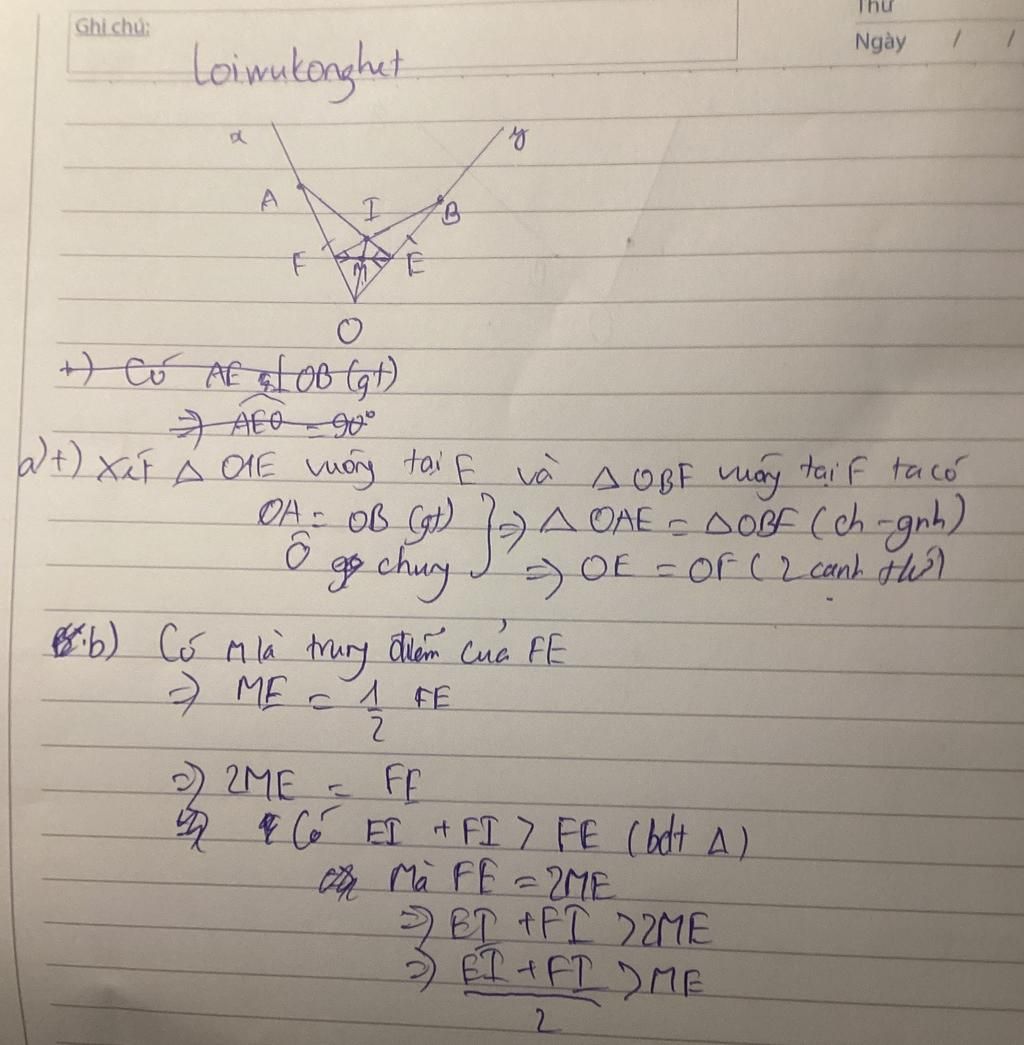 Ghi chú:
Thứ
Ngày / /
Loiwukonghet
x y
A I B
F M E
O
+) Có AE ⊥ OB (gt)
=> AEO = 90°
a) +) Xét △ OAE vuông tại E và △ OBF vuông tại F ta có
OA = OB (gt) } => △ OAE = △OBF (ch - gnh)
Ô chung => OE = OF (2 cạnh
b) Có M là trung điểm của FE
=> ME = 1/2 FE
=> 2ME = FE
Có EI + FI > FE (bdt △)
Mà FE = 2ME
=> EI + FI > 2ME
=> (EI + FI)/2 > ME